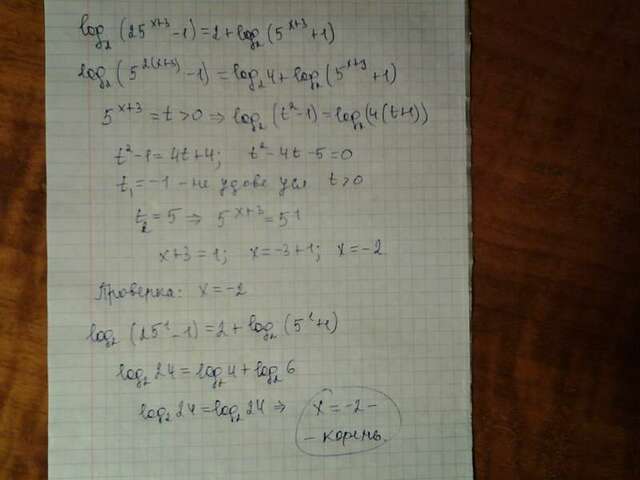 log₂(25^(x+3)-1)=2+log₂(5^(x+3)+1)
log₂(5^(2(x+3))-1)=log₂4+log₂(5^(x+3)+1)
5^(x+3)=t>0⇒log₂(t²-1)=log₂(4(t+1))
t²-1=4t+4; t²-4t-5=0
t₁=-1 - не удовл усл t>0
t₂=5⇒5^(x+3)=5¹
x+3=1; x=-3+1; x=-2
Проверка: x=-2
log₂(25¹-1)=2+log₂(5¹+1)
log₂24=log₂4+log₂6
log₂24=log₂24⇒ x=-2-
- корень.